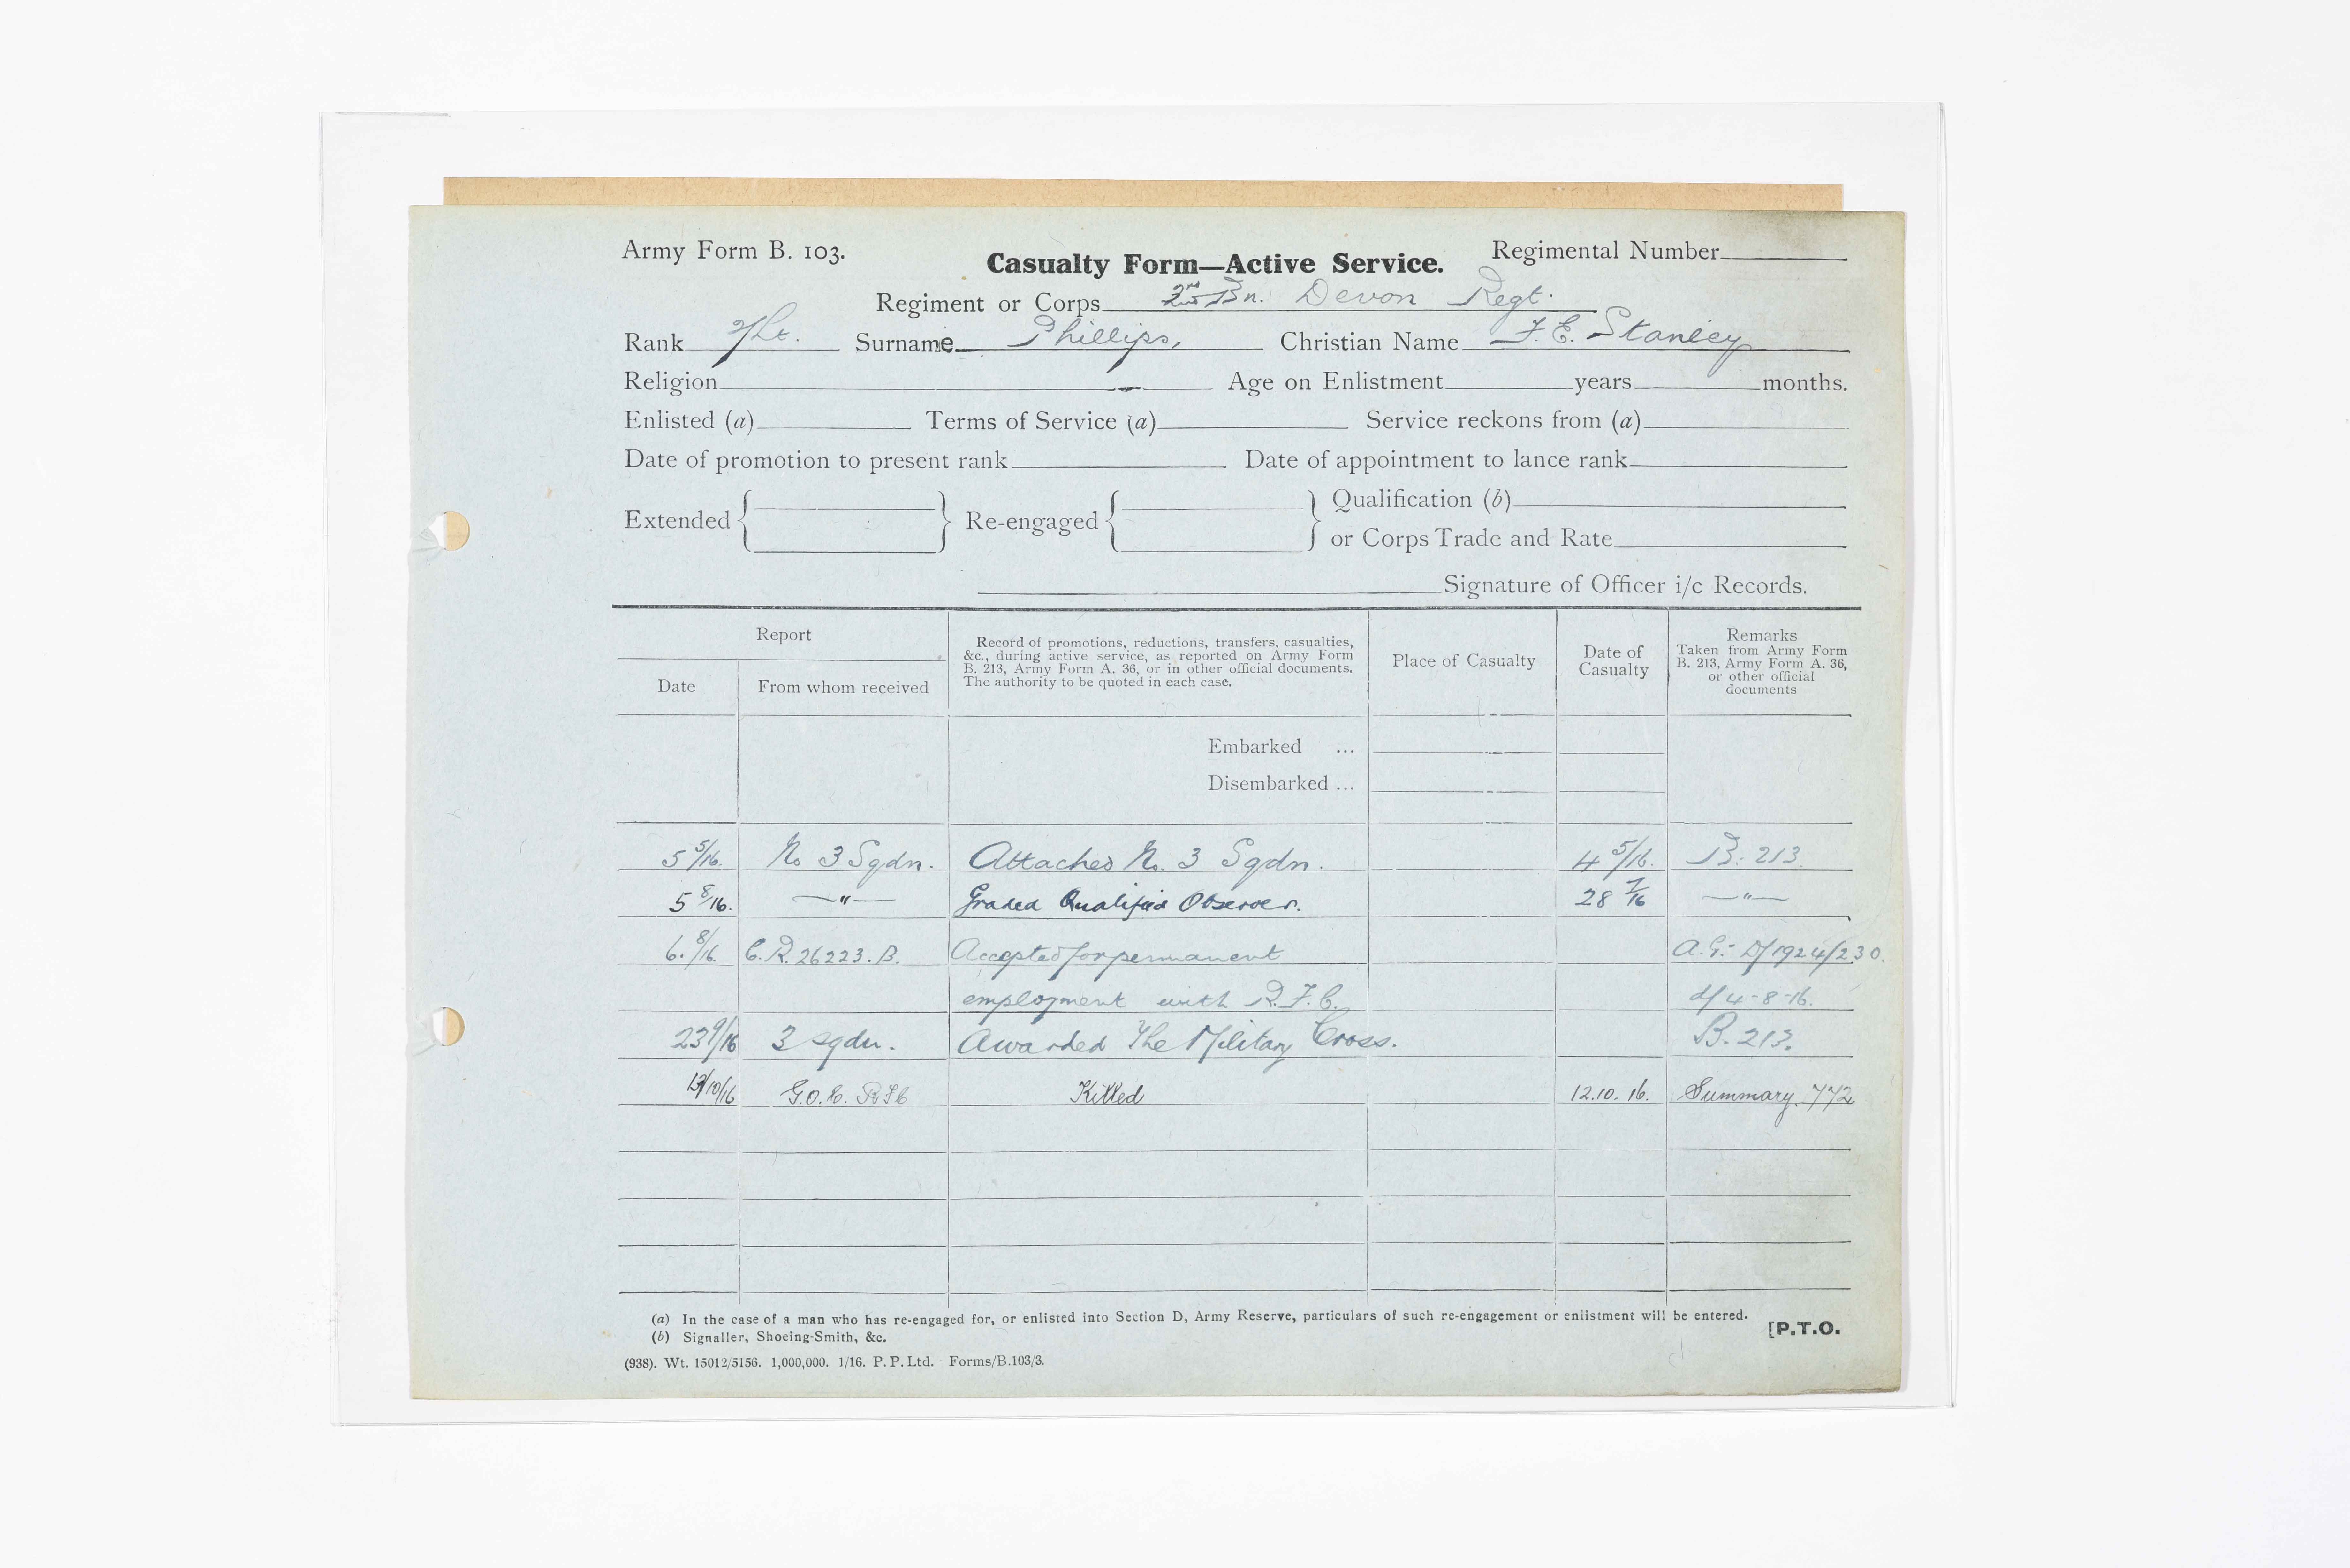 Army Form B. 103.
Casualty Form—Active Service.
Regimental Number
Regiment or Corps Bn. Devon Regt.
Rank 2/Lt. Surname Phillips, Christian Name F. E. Stanley
Religion — Age on Enlistment years months.
Enlisted (a) Terms of Service (a) Service reckons from (a)
Date of promotion to present rank Date of appointment to lance rank
Extended Re-engaged Qualification (b)
or Corps Trade and Rate
Signature of Officer i/c Records.
Report
Date From whom received
Record of promotions, reductions, transfers, casualties,
&c., during active service, as reported on Army Form
B. 213, Army Form A. 36, or in other official documents.
The authority to be quoted in each case.
Place of Casualty
Date of
Casualty
Remarks
Taken from Army Form
B. 213, Army Form A. 36,
or other official
documents
Embarked ...
Disembarked ...
5 5/16. No 3 Sqdn. Attached No. 3 Sqdn. 4 5/16. B. 213.
5 8/16. —"— Graded Qualified Observer. 28 7/16 —"—
6. 8/16. C.R. 26223. B. Accepted for permanent A.G. D/1924/230.
employment with R.F.C. d/ 4-8-16.
23 9/16 3 Sqdn. Awarded The Military Cross. B. 213.
13/10/16 G.O.C. RFC Killed 12.10.16. Summary. 772
(a) In the case of a man who has re-engaged for, or enlisted into Section D, Army Reserve, particulars of such re-engagement or enlistment will be entered.
(b) Signaller, Shoeing-Smith, &c.
[P.T.O.
(938). Wt. 15012/5156. 1,000,000. 1/16. P.P.Ltd. Forms/B.103/3.